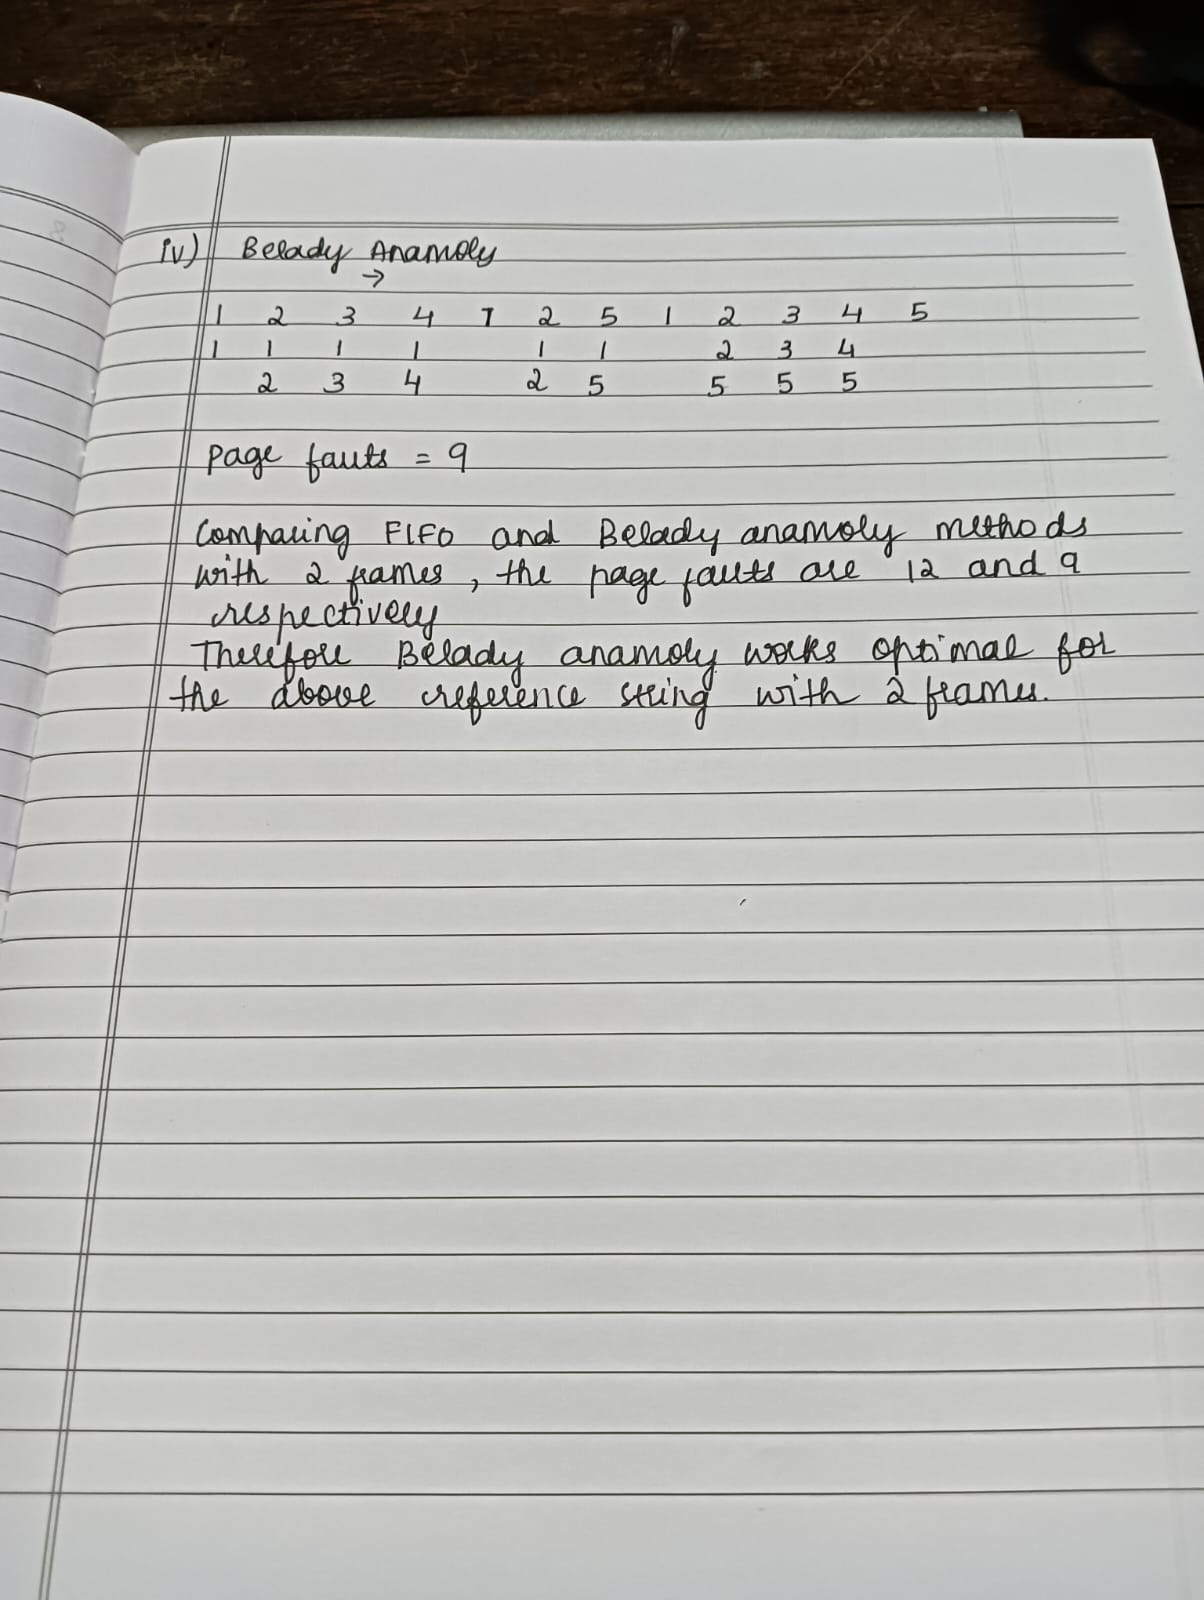 iv) Belady Anamoly
→
1 2 3 4 1 2 5 1 2 3 4 5
1 1 1 1 1 1 2 3 4
2 3 4 2 5 5 5 5
page fauts = 9
Comparing FIFO and Belady anamoly methods
with 2 frames, the page fauts are 12 and 9
respectively
Therefore Belady anamoly works optimal for
the above reference string with 2 frames.